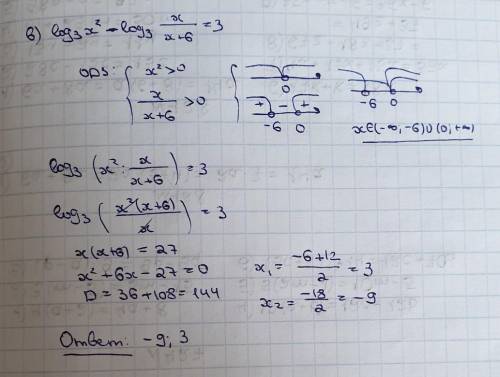 в) log₃ x² - log₃ x/(x+6) = 3
ODS: { x² > 0
x/(x+6) > 0
0
+ - +
-6 0
-6 0
x∈(-∞; -6)∪(0; +∞)
log₃ (x² : x/(x+6)) = 3
log₃ (x²(x+6)/x) = 3
x(x+6) = 27
x² + 6x - 27 = 0
D = 36 + 108 = 144
x₁ = (-6+12)/2 = 3
x₂ = -18/2 = -9
Ответ: -9; 3